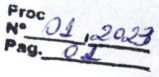 Proc
Nº 01, 2023
Pag. 02